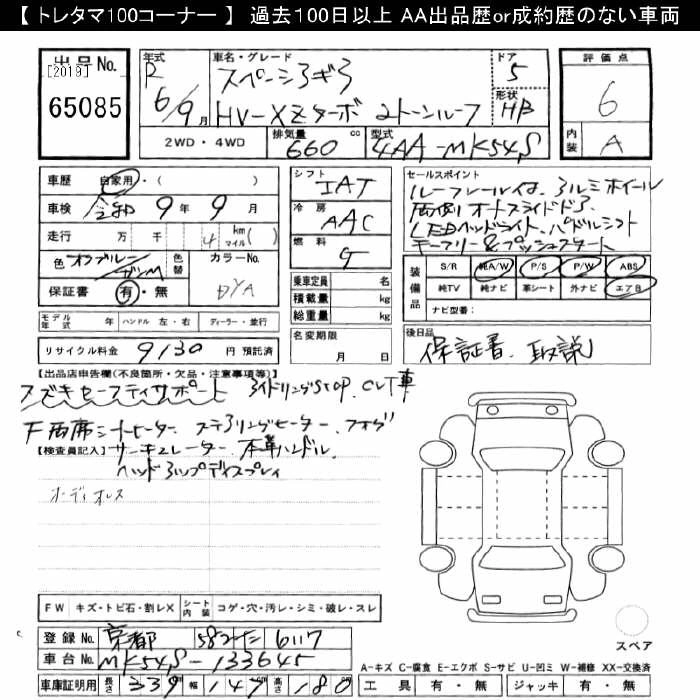 【 トレタマ100コーナー 】 過去100日以上 AA出品歴or成約歴のない車両
出品No.
[2019]
65085
年式 R 6/9月
車名・グレード スペーシアギア
HV-XZターボ 2トーンルーフ
ドア 5
形状 HB
2WD・4WD
排気量 660 cc
型式 4AA-MK54S
評価点 6
内装 A
車歴 自家用・( )
車検 令和 9年 9月
走行 万 千 4 km マイル( )
色 オフブルーガンM
色替
カラーNo. DYA
保証書 有・無
モデル年式 年 ハンドル 左・右 ディーラー・並行
リサイクル料金 9130 円 預託済
シフト IAT
冷房 AAC
燃料 G
乗車定員 名
積載量 kg
総重量 kg
名変期限 月 日
セールスポイント
ルーフレール付、アルミホイール
両側オートスライドドア、
LEDヘッドライト、パドルシフト
キーフリー&プッシュスタート
装備品
S/R 純A/W P/S P/W ABS
純TV 純ナビ 革シート 外ナビ エアB
ナビ型番:
後日品
保証書、取説
【出品店申告欄(不良箇所・欠品・注意事項等)】
スズキセーフティサポート アイドリングSTOP、CVT車
F両席シートヒーター、ステアリングヒーター、フォグ
【検査員記入】サーキュレーター、本革ハンドル、
ヘッドアップディスプレイ
オーディオレス
FW キズ・トビ石・割レX シート内装 コゲ・穴・汚レ・シミ・破レ・スレ
登録No. 京都 582 6117
車台No. MK54S-133645
車庫証明用 長さ 339 幅 147 高さ 180
スペア
A-キズ C-腐食 E-エクボ S-サビ U-凹ミ W-補修 XX-交換済
工具 有・無 ジャッキ 有・無